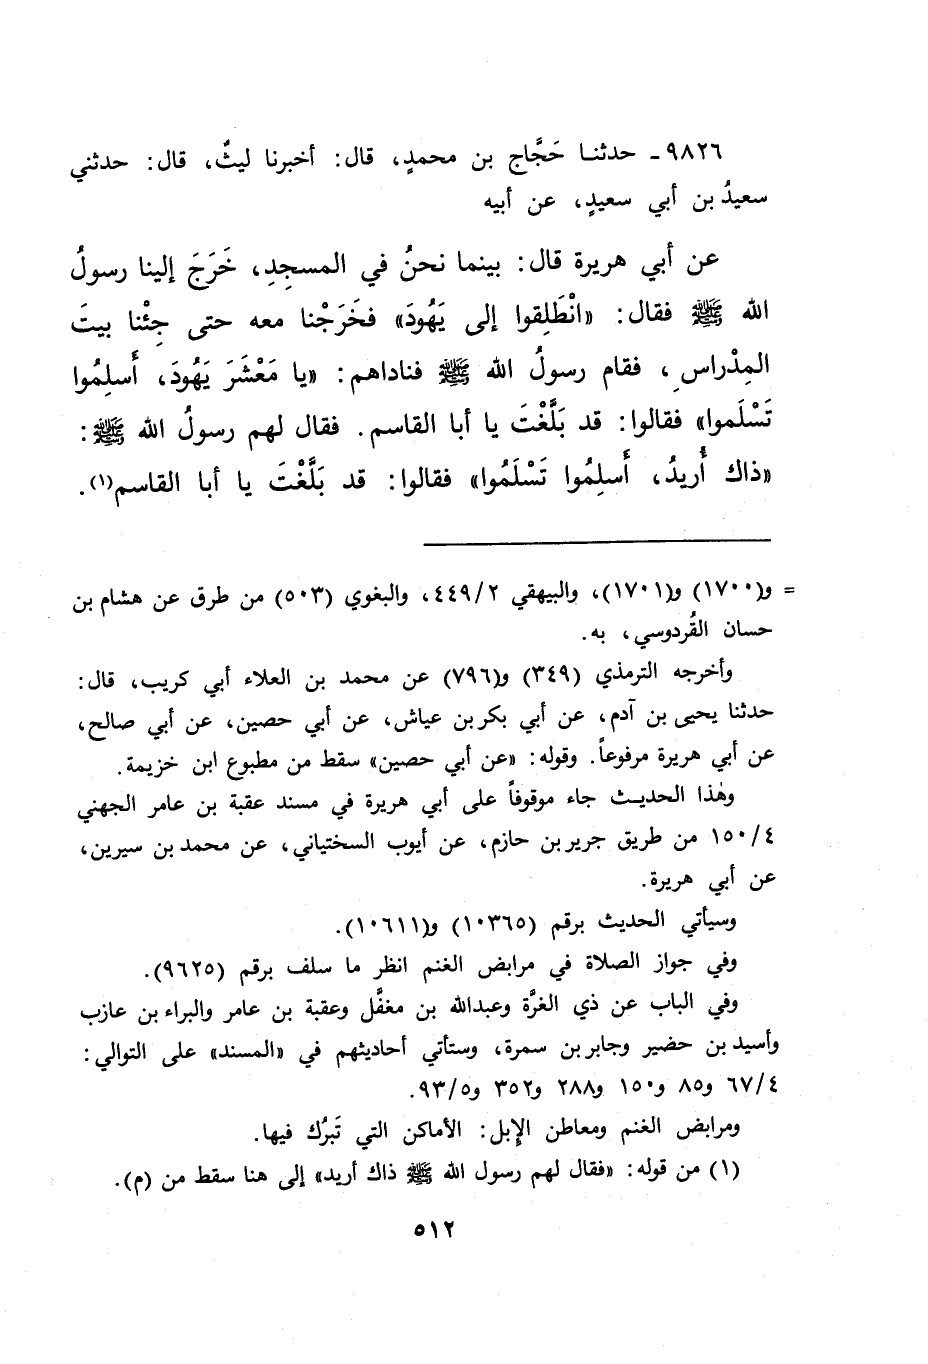 ٩٨٢٦ـ حدثنـا حَجَّاج بن محمدٍ، قال: أخبرنا ليثٌ، قال: حدثني
سعيدُ بن أبي سعيدٍ، عن أبيه
عن أبي هريرة قال: بينما نحنُ في المسجدِ، خَرَجَ إلينا رسولُ
الله ﷺ فقال: «انْطَلِقوا إلى يَهُودَ» فخَرَجْنا معه حتى جِئْنا بيتَ
المِدْراسِ، فقام رسولُ الله ﷺ فناداهم: «يا مَعْشَرَ يَهُودَ، أَسلِمُوا
تَسْلَموا» فقالوا: قد بَلَّغْتَ يا أبا القاسم. فقال لهم رسولُ الله ﷺ:
«ذاك أُريدُ، أَسلِمُوا تَسْلَمُوا» فقالوا: قد بَلَّغْتَ يا أبا القاسم(١).
= و(١٧٠٠) و(١٧٠١)، والبيهقي ٤٤٩/٢، والبغوي (٥٠٣) من طرق عن هشام بن
حسان القُردوسي، به.
وأخرجه الترمذي (٣٤٩) و(٧٩٦) عن محمد بن العلاء أبي كريب، قال:
حدثنا يحيى بن آدم، عن أبي بكر بن عياش، عن أبي حصين، عن أبي صالح،
عن أبي هريرة مرفوعاً. وقوله: «عن أبي حصين» سقط من مطبوع ابن خزيمة.
وهٰذا الحديـث جاء موقوفاً على أبي هريرة في مسند عقبة بن عامر الجهني
١٥٠/٤ من طريق جرير بن حازم، عن أيوب السختياني، عن محمد بن سيرين،
عن أبي هريرة.
وسيأتي الحديث برقم (١٠٣٦٥) و(١٠٦١١).
وفي جواز الصلاة في مرابض الغنم انظر ما سلف برقم (٩٦٢٥).
وفي الباب عن ذي الغرَّة وعبدالله بن مغفَّل وعقبة بن عامر والبراء بن عازب
وأسيد بن حضير وجابر بن سمرة، وستأتي أحاديثهم في «المسند» على التوالي:
٦٧/٤ و٨٥ و١٥٠ و٢٨٨ و٣٥٢ و٩٣/٥.
ومرابض الغنم ومعاطن الإِبل: الأماكن التي تَبرُك فيها.
(١) من قوله: «فقال لهم رسول الله ﷺ ذاك أريد» إلى هنا سقط من (م).
٥١٢